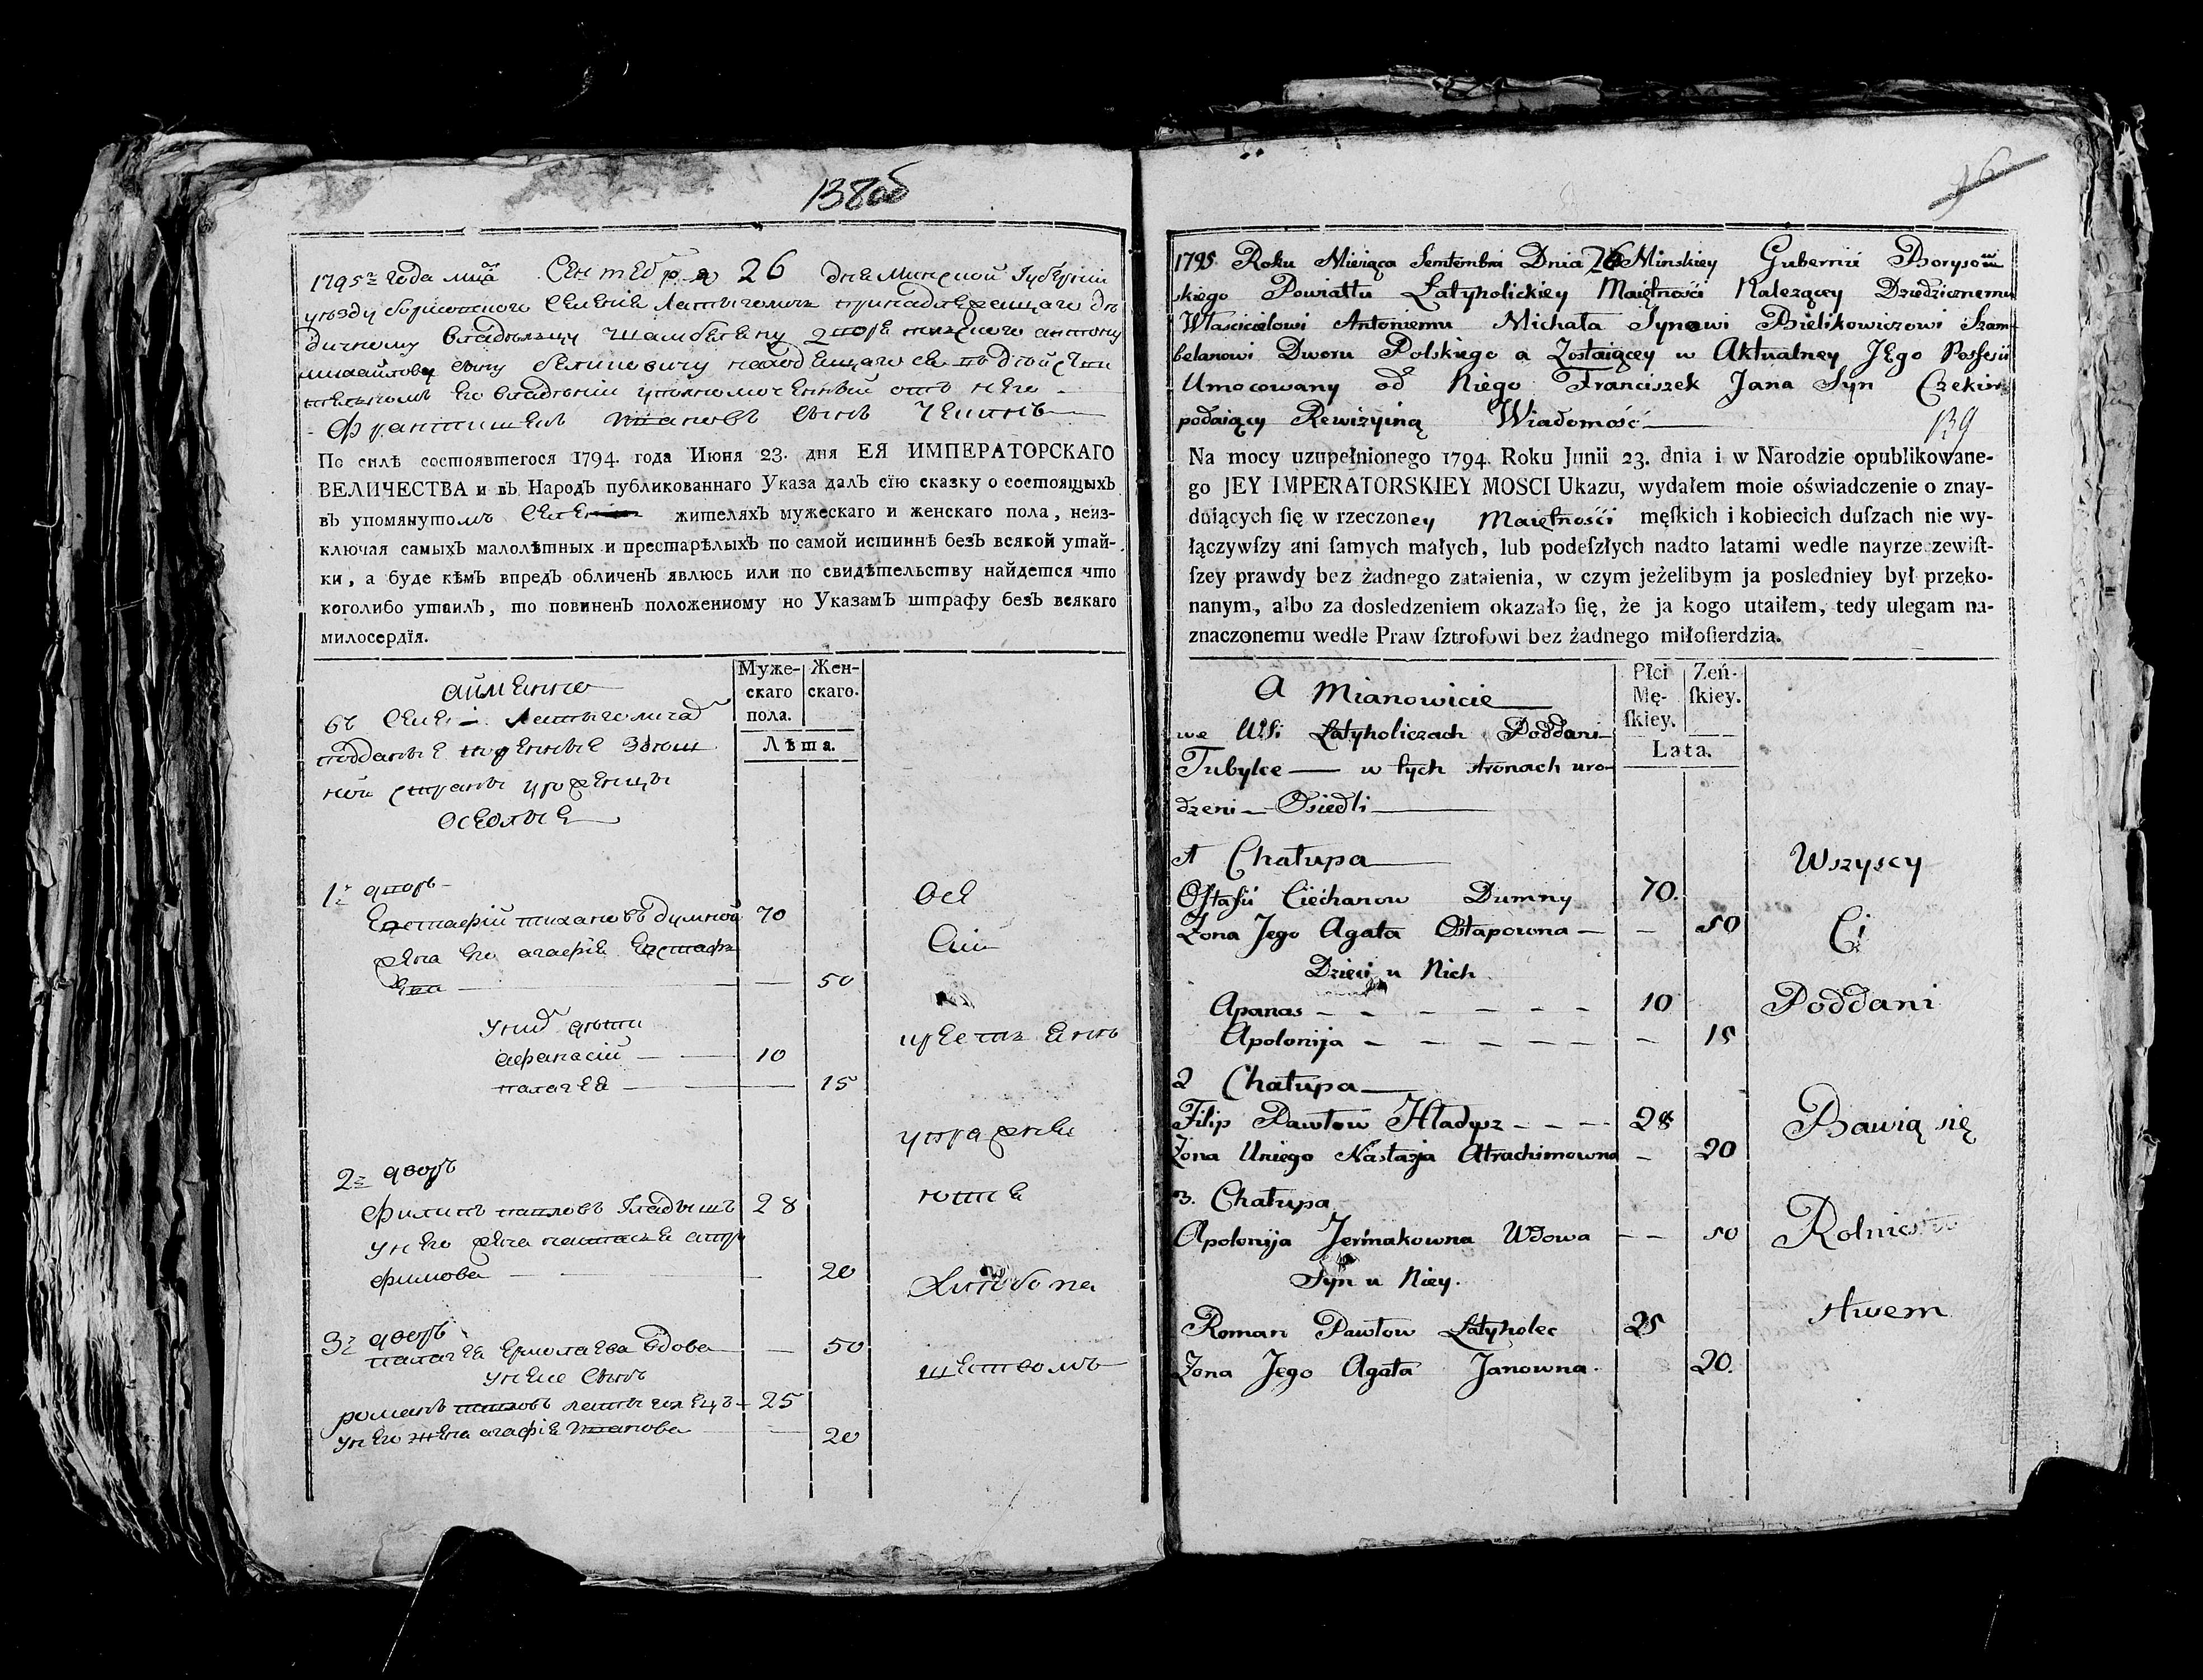 138об
1795г года мца Сентебря 26 дня Минской Губернiи
уезду борисовского селенiя Латыголичъ принадлежащаго дъ
дичному владъльцу Шамбеляну двора полского антону
михайлову сыну беликовичу находящагося въ дъйстви
тельномъ его владънiи уполномоченный отъ него
Францишекъ Ивановъ сынъ
По силѣ состоявшегося 1794. года Июня 23. дня ЕЯ ИМПЕРАТОРСКАГО
ВЕЛИЧЕСТВА и въ Народъ публикованнаго Указа далъ сїю сказку о состоящыхъ
въ упомянутомъ жителяхъ мужескаго и женскаго пола, неиз-
ключая самыхъ малолѣтных и престарѣлыхъ по самой истиннѣ безъ всякой утай-
ки, а буде кѣмъ впредъ обличенъ явлюсь или по свидѣтельству найдется что
коголибо утаилъ, то повиненъ положенному по Указамъ штрафу безъ всякаго
милосердїя.
аймѣнно
Муже-
скаго
пола.
Жен-
скаго.
Лѣта.
въ Латыголичад
подданые
ной страны уроженцы
оседлые
1й дворъ
Евстафiй Тихановъ думной 70
жена его агафiя Евстафь
ева 50
у нид дъти
афанасiй 10
палагея 15
2й дворъ
Филипъ павловъ Гладышъ 28
у него жена настасья
фимова 20
3й дворъ
палагея Ермолаева вдова 50
у нее сынъ
романъ павловъ латыголецъ 25
у него жена агафiя иванова 20
все
сии
крестьяне
упражня
ются
хлебопа
шествомъ
1795 Roku Miesiąca Semtembra Dnia 26 Minskiey Gubernii Borysow
skiego Powiattu Łatyholickiey Maiętnośći Nalezącey Dziedzicznemu
Włascicielowi Antoniemu Michała Synowi Bielikowiczowi Szam-
belanowi Dworu Polskiego a Zostaiącey w Aktualney JEgo Possesii
Umocowany od Niego Franciszek Jana Syn
podaiący Rewizyiną Wiadomość
139
Na mocy uzupełnionego 1794. Roku Junii 23. dnia i w Narodzie opublikowane-
go JEY IMPERATORSKIEY MOSCI Ukazu, wydałem moie oświadczenie o znay-
duiących ſię w rzeczoney Maiętnośći męſkich i kobiecich duſzach nie wy-
łączywſzy ani ſamych małych, lub podeſzłych nadto latami wedle nayrzeczewiſt-
ſzey prawdy bez żadnego zataienia, w czym jeżelibym ja posledniey był przeko-
nanym, albo za dosledzeniem okazało ſię, że ja kogo utaiłem, tedy ulegam na-
znaczonemu wedle Praw ſztrofowi bez żadnego miłoſierdzia.
A Mianowicie
Płci
Mę-
ſkiey.
Zeń-
ſkiey.
Lata.
we Wsi Łatyholiczach Poddani
Tubylce w tych stronach uro-
dzeni Osiedli
1 Chałupa
Ostafii Ciechanow Dumny 70.
Zona Jego Agata Ostapowna 50
Dzieci u Nich
Apanas 10
Apolonija 15
2 Chałupa
Filip Pawłow Hładysz 28
Zona Uniego Nastazja Atrachimowna 20
3. Chałupa
Apolonija Jermakowna Wdowa 50
Syn u Niey.
Roman Pawłow Łatyholec 25
Zona Jego Agata Janowna. 20.
Wszyscy
Ci
Poddani
Bawią się
Rolnic
stwem